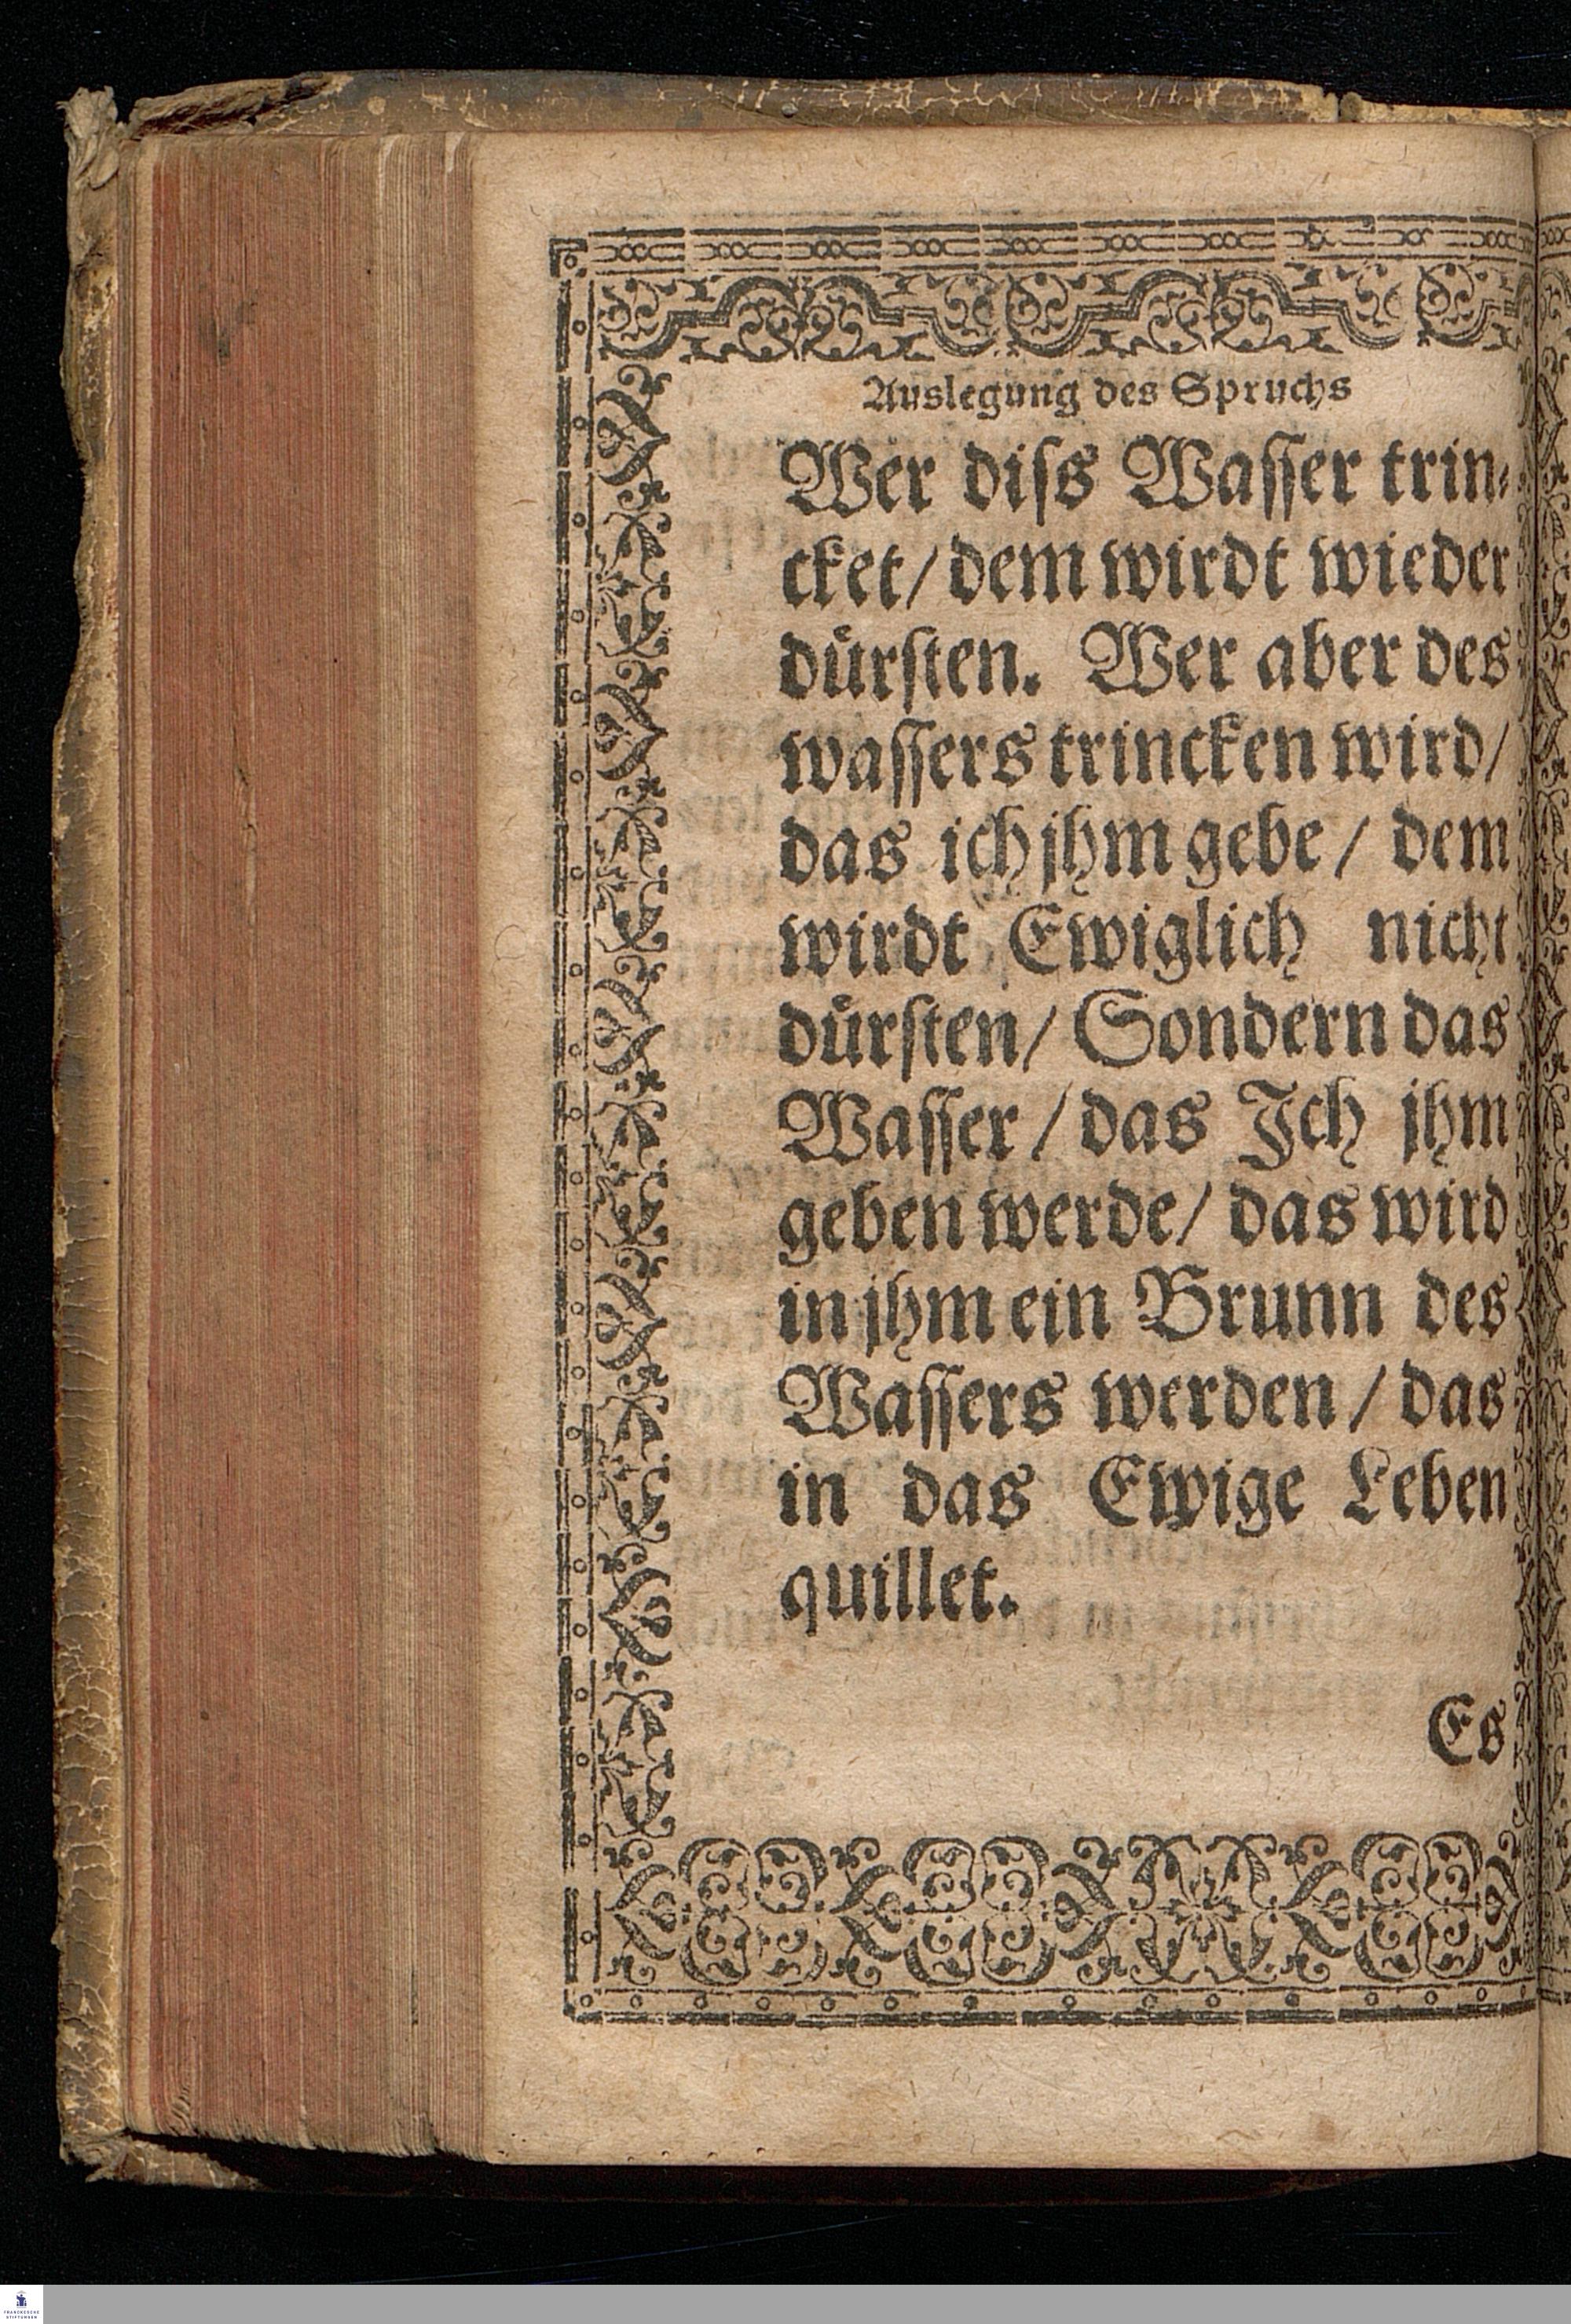 Auslegung des Spruchs
Wer diſs Waſſer trin⸗
cket/ dem wirdt wieder
duͤrſten. Wer aber des
waſſers trincken wird/
das ich jhm gebe / dem
wirdt Ewiglich nicht
duͤrſten/ Sondern das
Waſſer / das Ich jhm
geben werde/ das wird
in jhm ein Brunn des
Waſſers werden / das
in das Ewige Leben
quillet.
Es
FRANCKESCHE
STIFTUNGEN